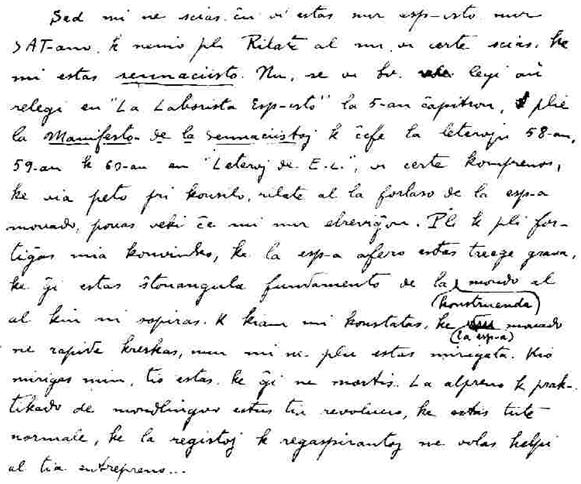 Sed mi ne scias, ĉu vi estas nur esp-isto nur
SAT-ano, k nenio pli. Rilate al mi, vi certe scias, ke
mi estas sennaciisto. Nu, se vi bv. legi aŭ
relegi en "La Laborista Esp-isto" la 5-an ĉapitron, plie
la Manifeston de la sennaciistoj k ĉefe la leterojn 58-an,
59-an k 60-an en "Leteroj de E.L.", vi certe komprenos,
ke via peto pri konsilo, rilate al la forlaso de la esp-a
movado, povas veki ĉe mi nur elreviĝon. Pli k pli for-
tiĝas mia konvinko, ke la esp-a afero estas treege grava,
ke ĝi estas ŝtonangula fundamento de la mondo al
(konstruenda)
al kiu ni sopiras. K kiam mi konstatas, ke movado
(la esp-a)
ne rapide kreskas, nun mi ne plu estas mirigata. Kio
mirigas min, tio estas, ke ĝi ne mortis. La alpreno k prak-
tikado de mondlingvo estus tia revolucio, ke estas tute
normale, ke la registoj k regaspirantoj ne volas helpi
al tia entrepreno...